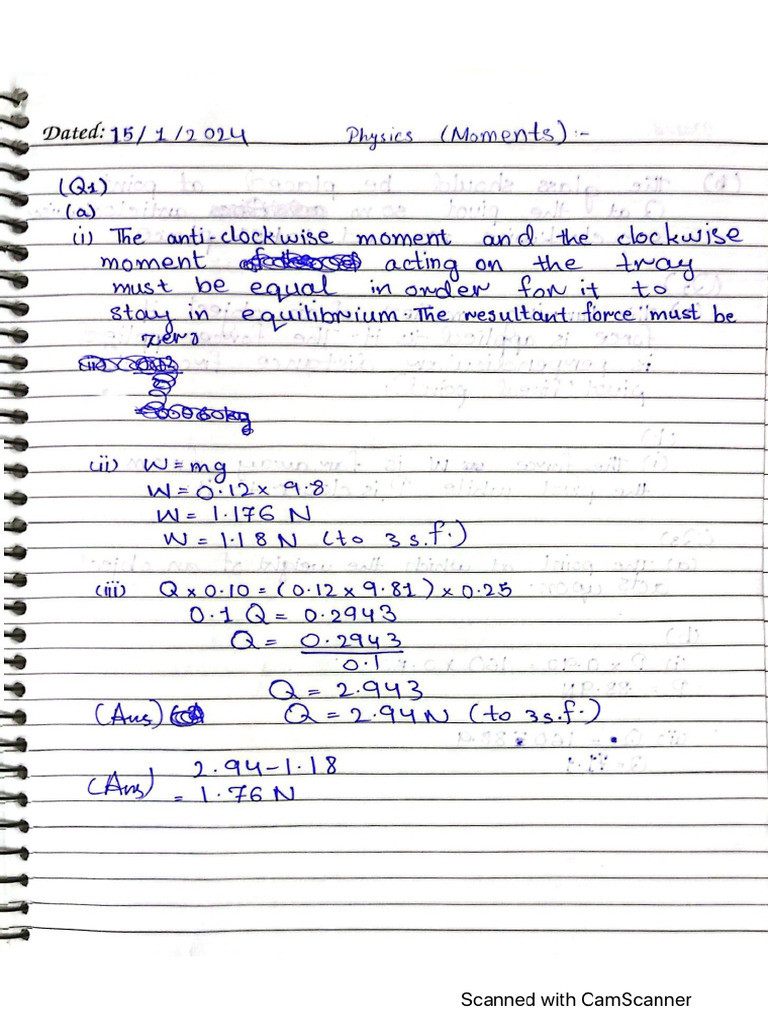 Dated: 15/1/2024 Physics (Moments):-
(Q1)
(a)
(i) The anti-clockwise moment and the clockwise
moment acting on the tray
must be equal in order for it to
stay in equilibrium. The resultant force must be
zero
(ii) W=mg
W=0.12×9.8
W=1.176 N
W=1.18N (to 3 s.f.)
(iii) Q×0.10=(0.12×9.81)×0.25
0.1 Q=0.2943
Q=0.2943
0.1
Q=2.943
(Ans) Q=2.94N (to 3s.f.)
2.94-1.18
(Ans) =1.76N
Scanned with CamScanner